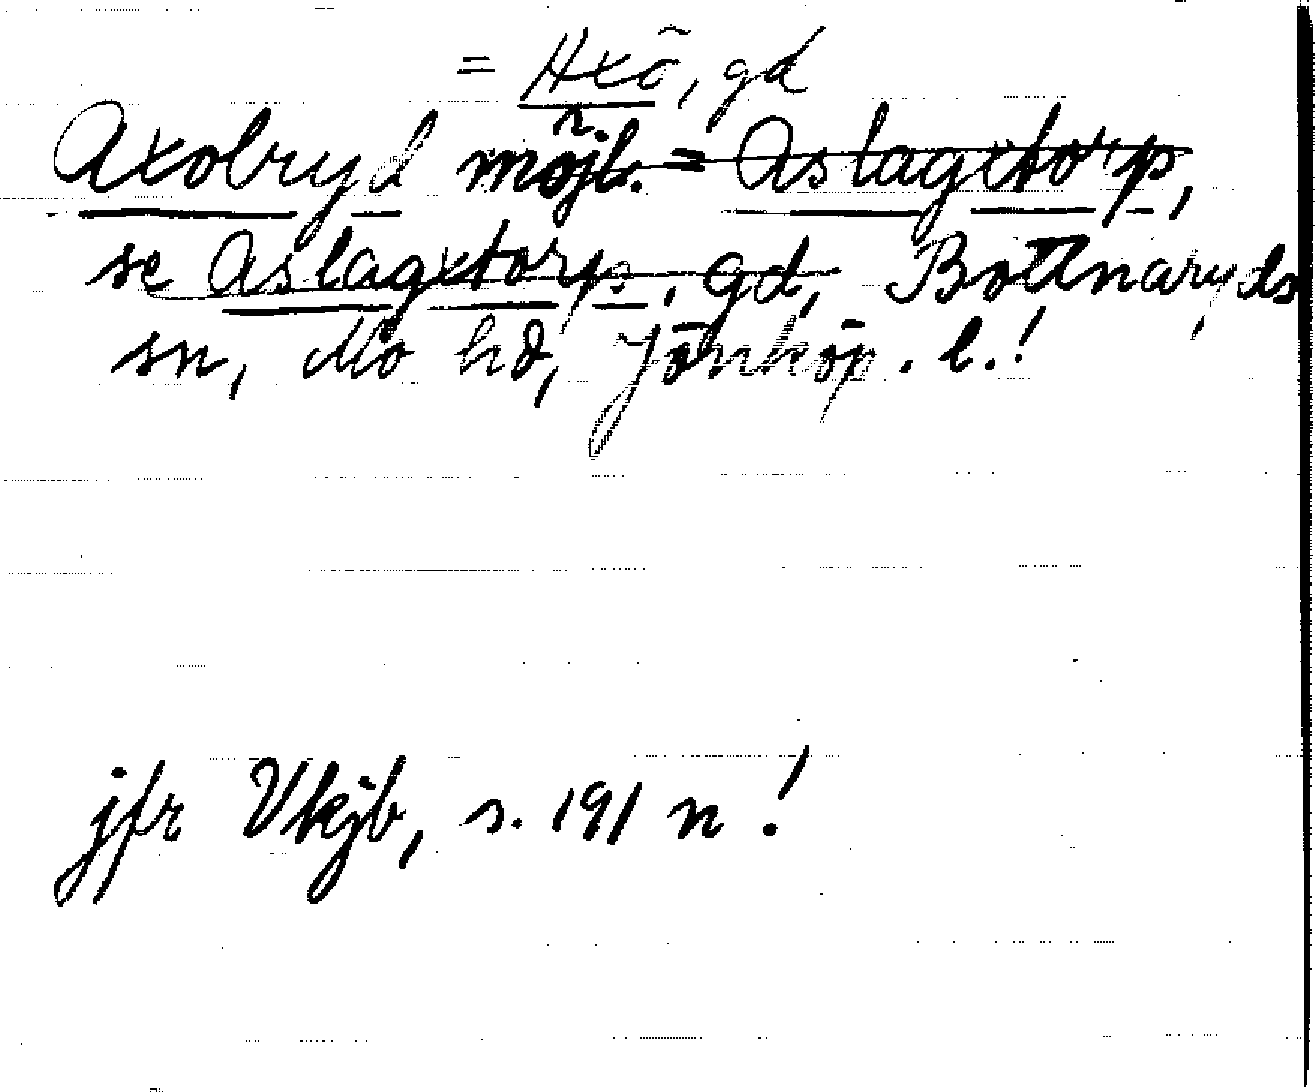 = Hxö, gd
Axobryd möjl. = Aslagxtorp,
se Aslagxtorp, gd, Bottnaryds
sn, Mo hd, Jönköp. l.!
jfr Vkjb, s. 191 n!